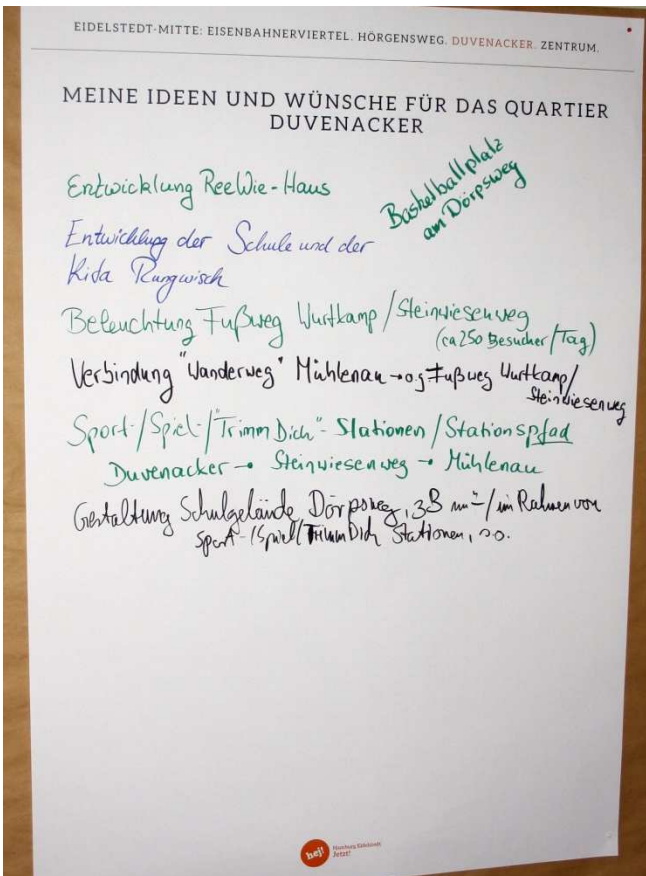 EIDELSTEDT-MITTE: EISENBAHNERVIERTEL. HÖRGENSWEG. DUVENACKER. ZENTRUM.
MEINE IDEEN UND WÜNSCHE FÜR DAS QUARTIER
DUVENACKER
Entwicklung ReeWie-Haus
Basketballplatz
am Dörpsweg
Entwicklung der Schule und der
Kita Rungwisch
Beleuchtung Fußweg Wurtkamp/Steinwiesenweg
(ca 250 Besucher/Tag)
Verbindung "Wanderweg" Mühlenau → o.g Fußweg Wurtkamp/
Steinwiesenweg
Sport-/Spiel-/"Trimm Dich"-Stationen/Stationspfad
Duvenacker → Steinwiesenweg → Mühlenau
Gestaltung Schulgelände Dörpsweg, /im Rahmen von
Sport-/Spiel/Trimm Dich Stationen, s.o.
hej!
Hamburg Eidelstedt
Jetzt!